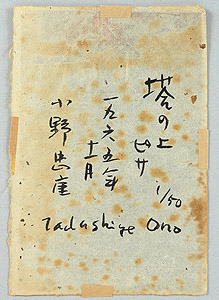 塔の上
ピサ
1/50
一九六五年
十一月
小野忠重
Tadashige Ono